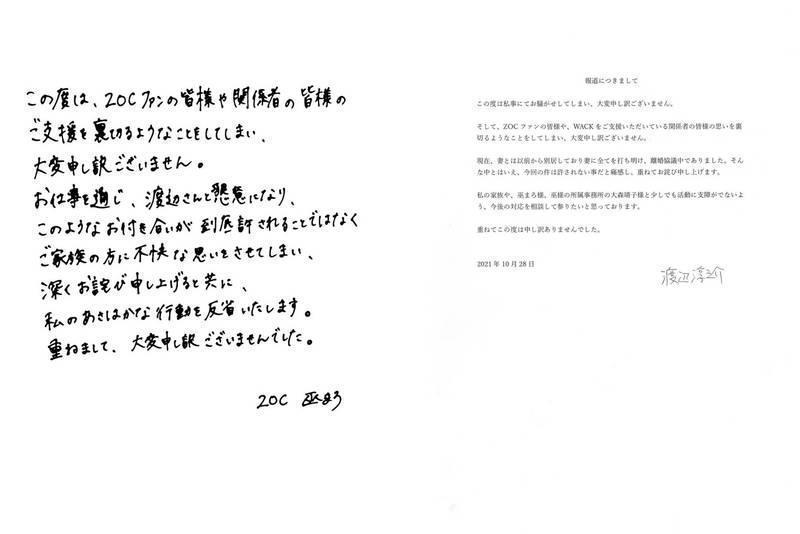 この度は、ZOCファンの皆様や関係者の皆様の
ご支援を裏切るようなことをしてしまい、
大変申し訳ございません。
お仕事を通じ、渡辺さんと懇意になり、
このようなお付き合いが到底許されることではなく
ご家族の方に不快な思いをさせてしまい、
深くお詫び申し上げると共に、
私のあさはかな行動を反省いたします。
重ねまして、大変申し訳ございませんでした。
ZOC 巫まろ
報道につきまして
この度は私事にてお騒がせしてしまい、大変申し訳ございません。
そして、ZOCファンの皆様や、WACKをご支援いただいている関係者の皆様の思いを裏
切るようなことをしてしまい、大変申し訳ございません。
現在、妻とは以前から別居しており妻に全てを打ち明け、離婚協議中でありました。そん
な中とはいえ、今回の件は許されない事だと痛感し、重ねてお詫び申し上げます。
私の家族や、巫まろ様、巫様の所属事務所の大森靖子様と少しでも活動に支障がでないよ
う、今後の対応を相談して参りたいと思っております。
重ねてこの度は申し訳ありませんでした。
2021年10月28日
渡辺淳之介